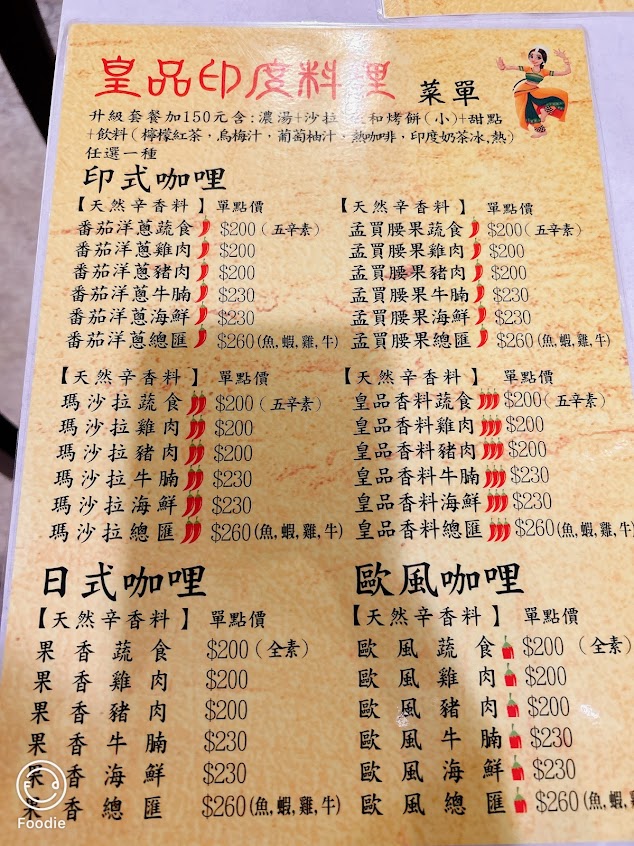 皇品印度料理 菜單
升級套餐加150元含:濃湯+沙拉 和烤餅(小)+甜點
+飲料(檸檬紅茶,烏梅汁,葡萄柚汁,熱咖啡,印度奶茶冰,熱)
任選一種
印式咖哩
【天然辛香料】單點價
番茄洋蔥蔬食 $200(五辛素)
番茄洋蔥雞肉 $200
番茄洋蔥豬肉 $200
番茄洋蔥牛腩 $230
番茄洋蔥海鮮 $230
番茄洋蔥總匯 $260(魚,蝦,雞,牛)
【天然辛香料】單點價
孟買腰果蔬食 $200(五辛素)
孟買腰果雞肉 $200
孟買腰果豬肉 $200
孟買腰果牛腩 $230
孟買腰果海鮮 $230
孟買腰果總匯 $260(魚,蝦,雞,牛)
【天然辛香料】單點價
瑪沙拉蔬食 $200(五辛素)
瑪沙拉雞肉 $200
瑪沙拉豬肉 $200
瑪沙拉牛腩 $230
瑪沙拉海鮮 $230
瑪沙拉總匯 $260(魚,蝦,雞,牛)
【天然辛香料】單點價
皇品香料蔬食 $200(五辛素)
皇品香料雞肉 $200
皇品香料豬肉 $200
皇品香料牛腩 $230
皇品香料海鮮 $230
皇品香料總匯 $260(魚,蝦,雞,牛)
日式咖哩
【天然辛香料】單點價
果香蔬食 $200(全素)
果香雞肉 $200
果香豬肉 $200
果香牛腩 $230
果香海鮮 $230
香總匯 $260(魚,蝦,雞,牛)
歐風咖哩
【天然辛香料】單點價
歐風蔬食 $200(全素)
歐風雞肉 $200
歐風豬肉 $200
歐風牛腩 $230
歐風海鮮 $230
歐風總匯 $260(魚,蝦,雞,
Foodie